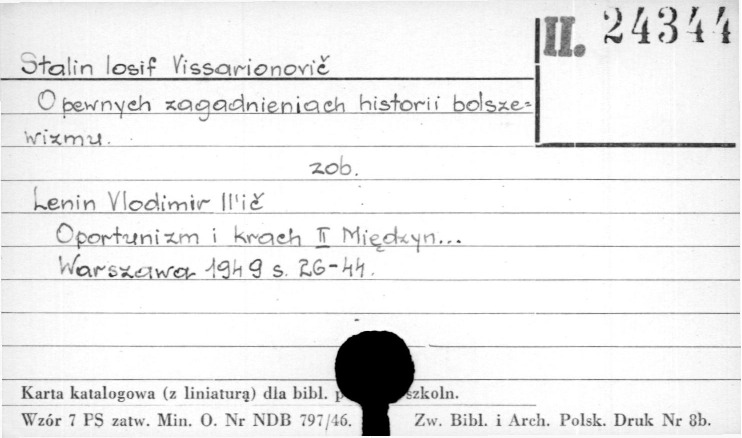 II. 24344
Stalin Iosif Vissarionovič
O pewnych zagadnieniach historii bolsze=
wizmu.
zob.
Lenin Vlodimir Il'ič
Oportunizm i krach II Międzyn...
Warszawa 1949 s. 26-44.
Karta katalogowa (z liniaturą) dla bibl. p szkoln.
Wzór 7 PS zatw. Min. O. Nr NDB 797/46. Zw. Bibl. i Arch. Polsk. Druk Nr 8b.